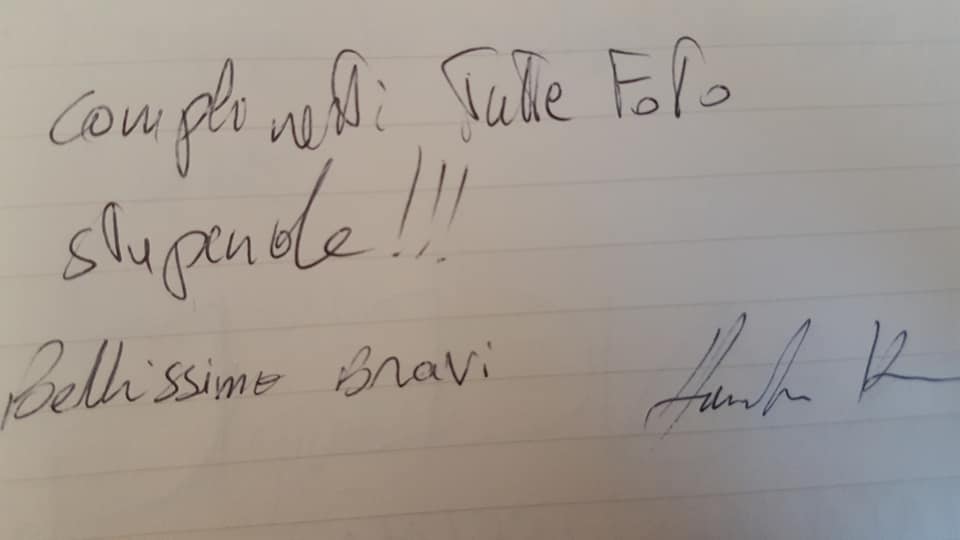 Complimenti Tutte Foto
stupende!!!
Bellissime Bravi